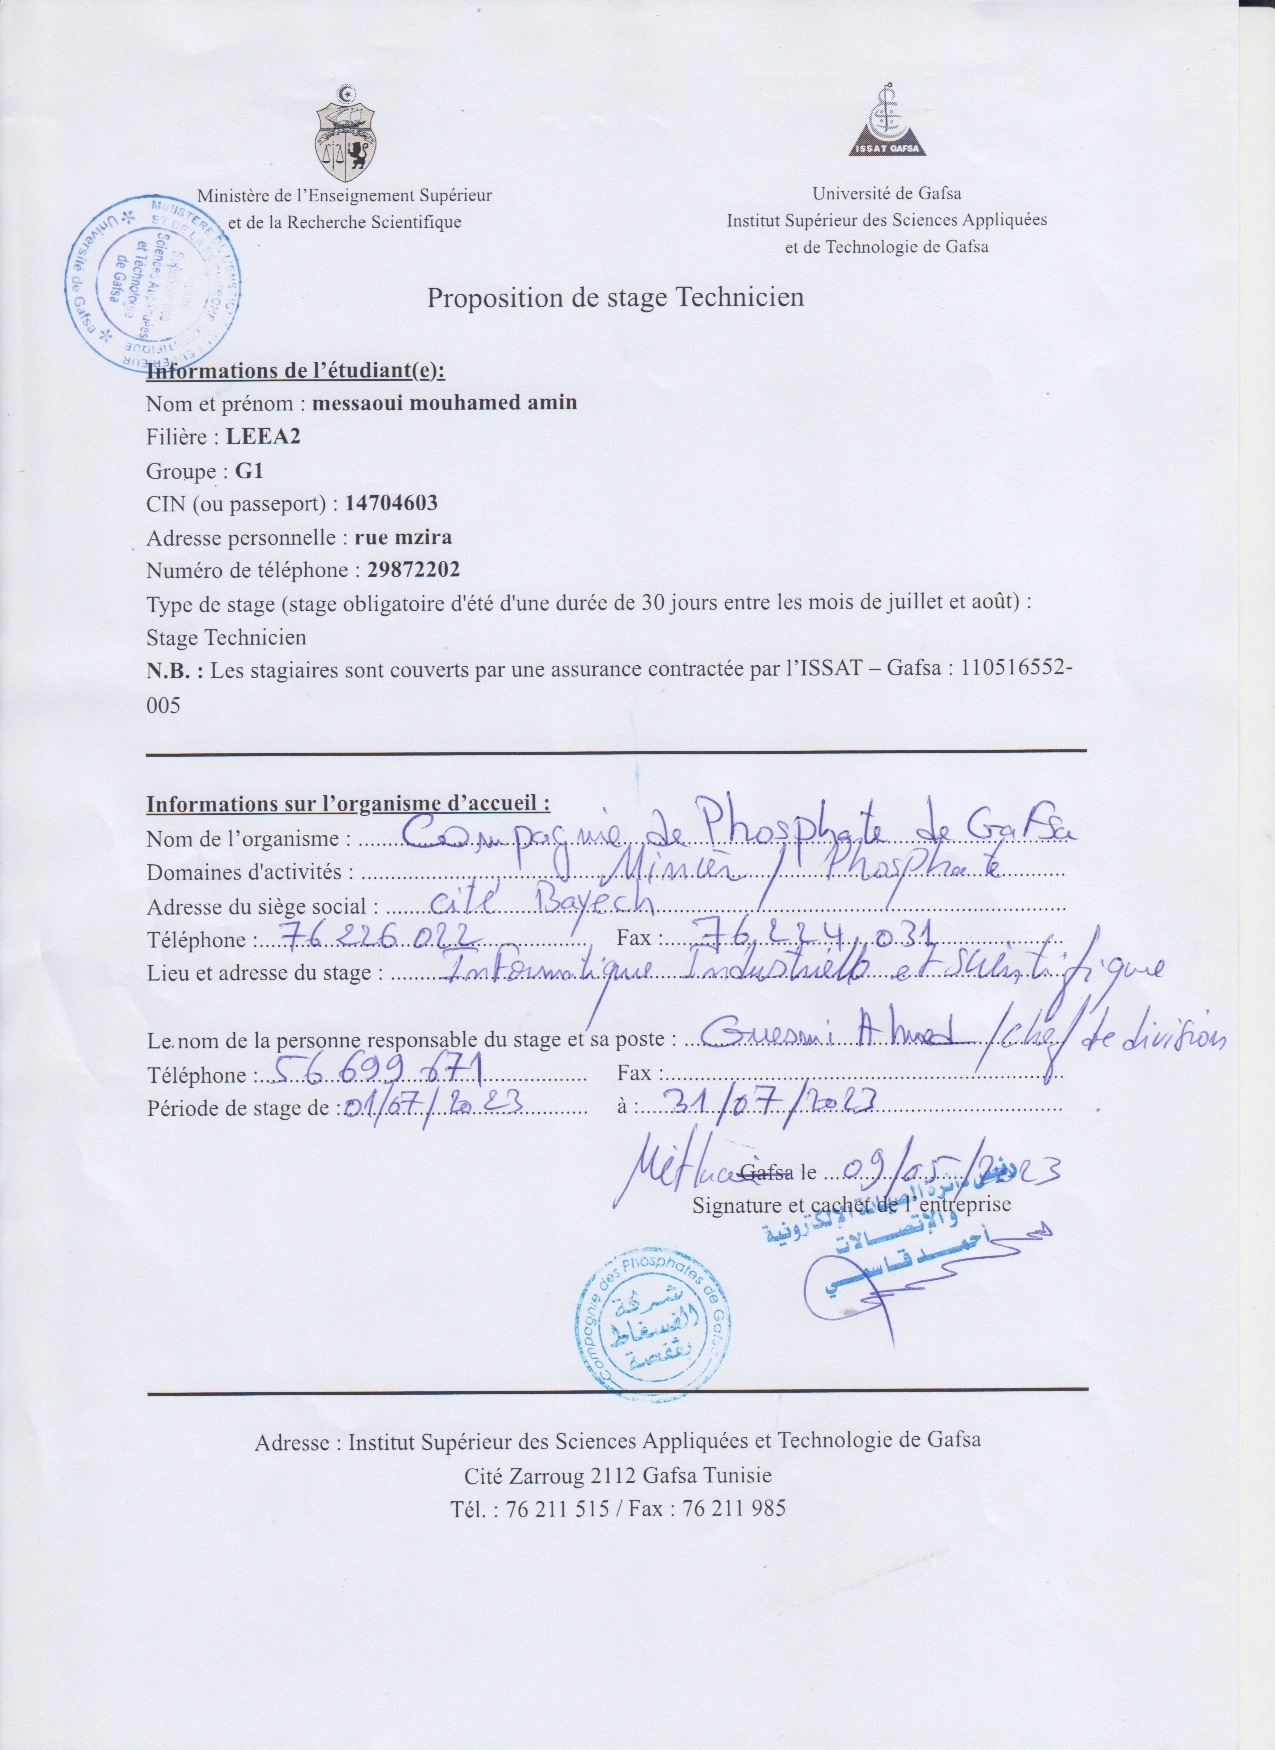 ISSAT GAFSA
Ministère de l'Enseignement Supérieur
et de la Recherche Scientifique
Université de Gafsa
Institut Supérieur des Sciences Appliquées
et de Technologie de Gafsa
Université de Gafsa
Proposition de stage Technicien
Informations de l'étudiant(e):
Nom et prénom : messaoui mouhamed amin
Filière : LEEA2
Groupe : G1
CIN (ou passeport) : 14704603
Adresse personnelle : rue mzira
Numéro de téléphone : 29872202
Type de stage (stage obligatoire d'été d'une durée de 30 jours entre les mois de juillet et août) :
Stage Technicien
N.B. : Les stagiaires sont couverts par une assurance contractée par l'ISSAT – Gafsa : 110516552-
005
Informations sur l'organisme d'accueil :
Nom de l'organisme : Compagnie de Phosphate de Gafsa
Domaines d'activités : Minièr / Phosphate
Adresse du siège social : cité Bayech
Téléphone : 76 226 022 Fax : 76 224 031
Lieu et adresse du stage : Informatique Industrielle et scientifique
Le nom de la personne responsable du stage et sa poste : Guesmi Ahmed / chef de division
Téléphone : 56 699 671 Fax :
Période de stage de : 01/07/2023 à : 31/07/2023
Gafsa le 09/05/2023
Signature et cachet de l'entreprise
رئيس دائرة الصيانة الإلكترونية
والإتصالات
أحمد قاسمي
Compagnie des Phosphates de Gafsa
شركة
الفسفاط
بقفصة
Adresse : Institut Supérieur des Sciences Appliquées et Technologie de Gafsa
Cité Zarroug 2112 Gafsa Tunisie
Tél. : 76 211 515 / Fax : 76 211 985